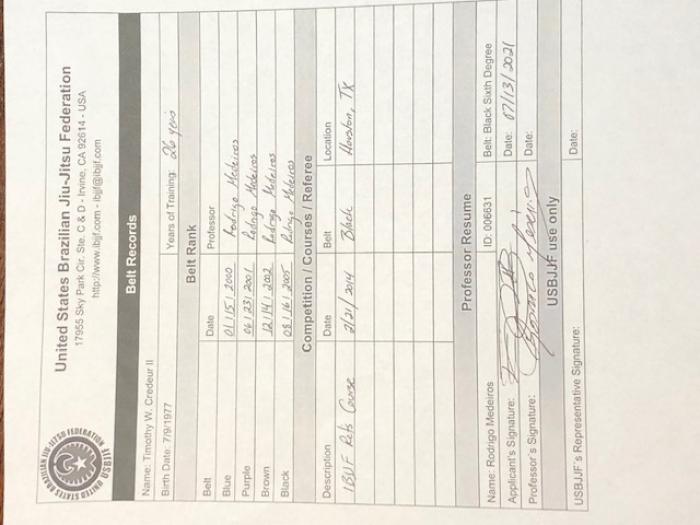 United States Brazilian Jiu-Jitsu Federation
17955 Sky Park Cir. Ste. C & D - Irvine, CA 92614 - USA
http://www.ibjjf.com - ibjjf@ibjjf.com
UNITED STATES BRAZILIAN JIU-JITSU FEDERATION
USBJJF
Belt Records
Name: Timothy W. Credeur II
Birth Date: 7/9/1977 Years of Training: 26 years
Belt Rank
Belt Date Professor
Blue 01/15/2000 Rodrigo Medeiros
Purple 06/23/2001 Rodrigo Medeiros
Brown 12/14/2002 Rodrigo Medeiros
Black 08/16/2005 Rodrigo Medeiros
Competition / Courses / Referee
Description Date Belt Location
IBJJF Refs Course 2/21/2014 Black Houston, TX
Professor Resume
Name: Rodrigo Medeiros ID: 006631 Belt: Black Sixth Degree
Applicant's Signature: Date: 07/13/2021
Professor's Signature: Date:
USBJJF use only
USBJJF's Representative Signature: Date: